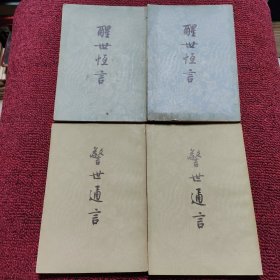 醒世恒言
醒世恒言
警世通言
警世通言